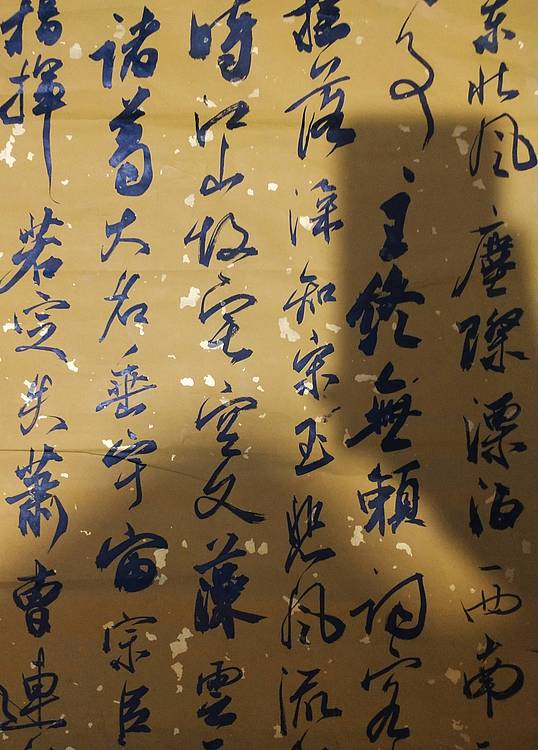 東北風塵際漂泊西南
事主終無賴詞客
搖落深知宋玉悲風流
時江山故宅空文藻雲
諸葛大名垂宇宙宗臣
指揮若定失蕭曹運